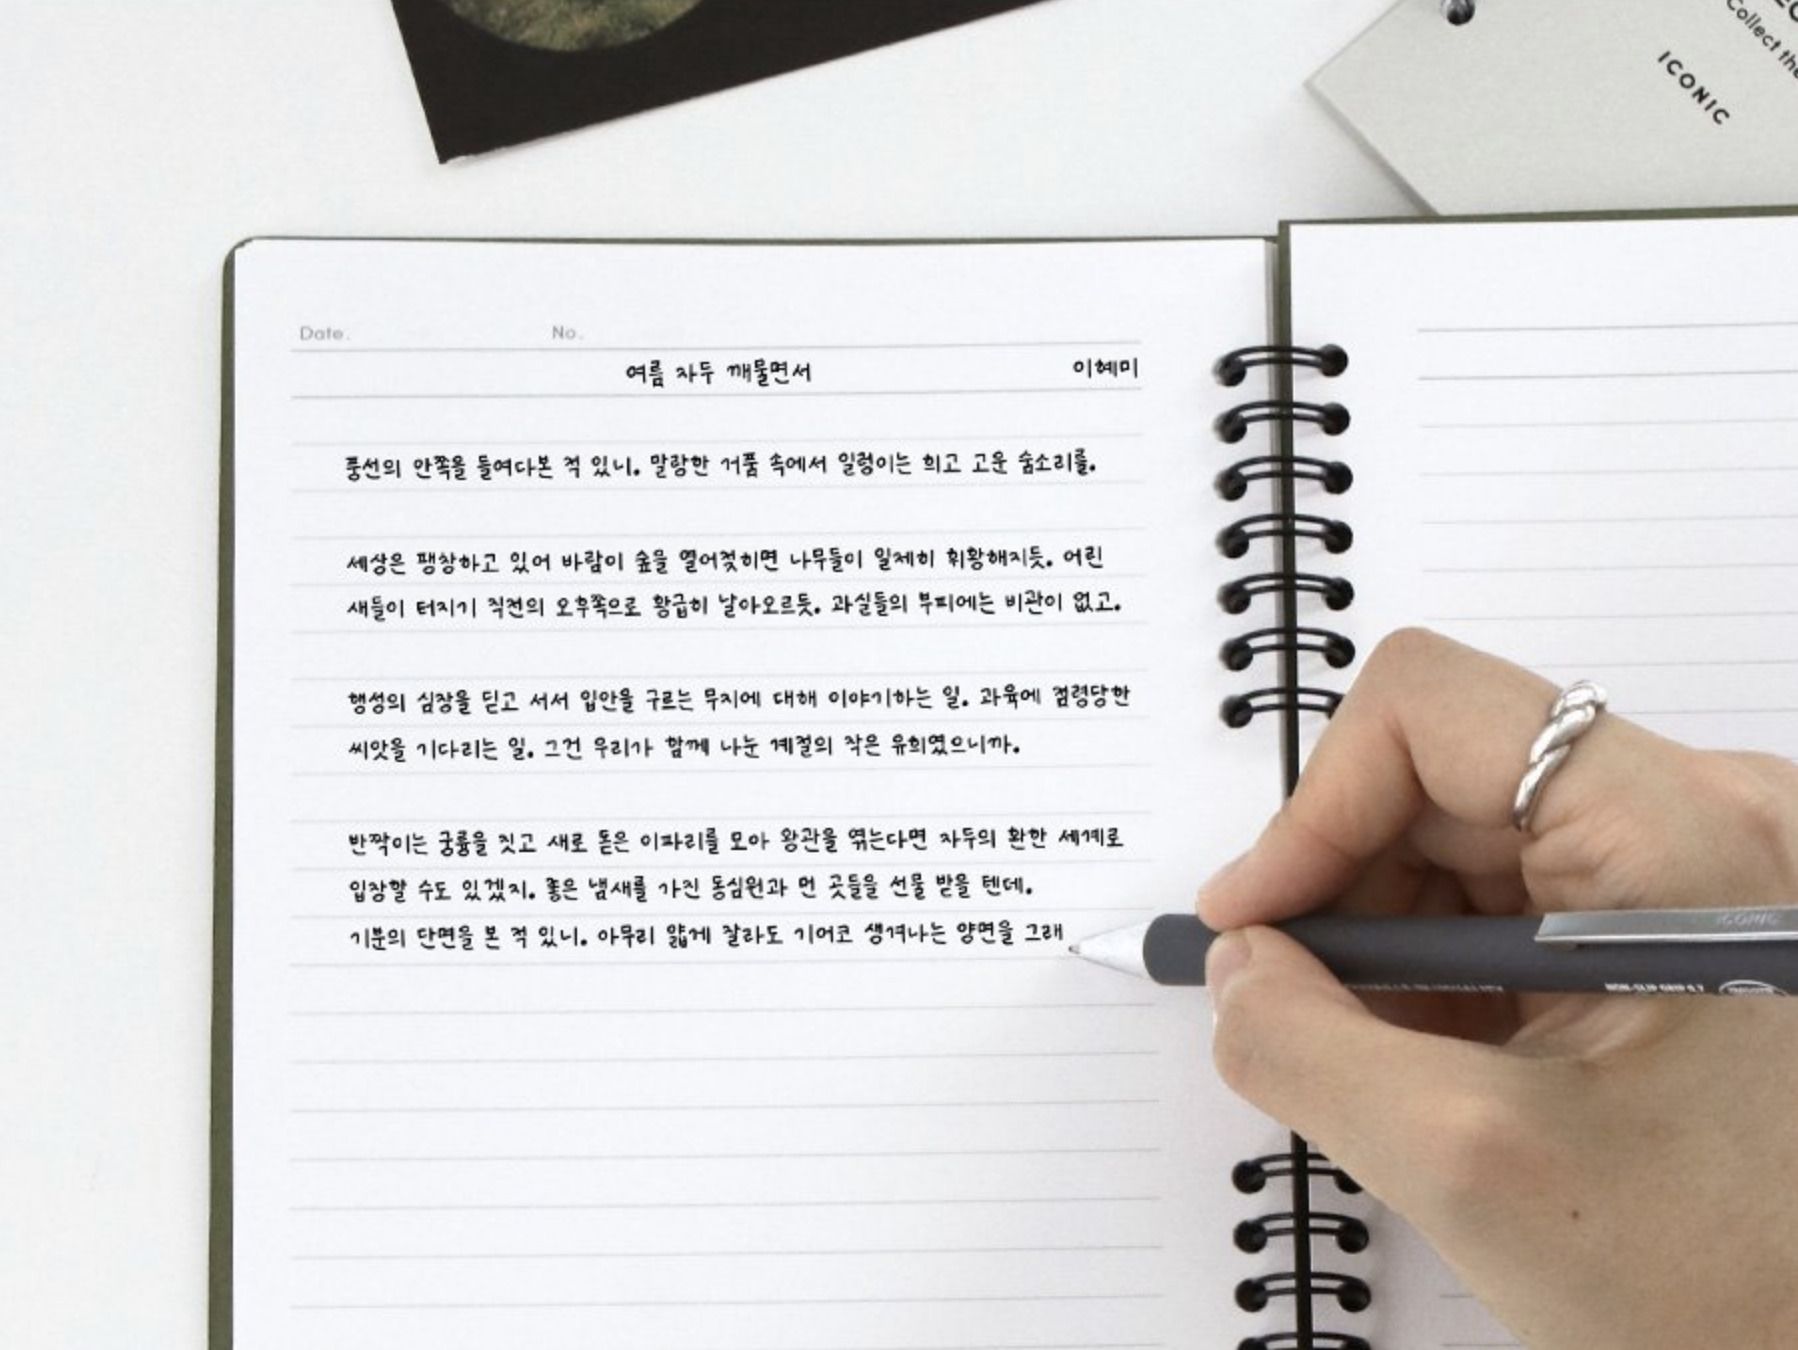 EC
Collect the
ICONIC
Date. No.
여름 자두 깨물면서 이혜미
풍선의 안쪽을 들여다본 적 있니. 말랑한 거품 속에서 일렁이는 희고 고운 숨소리를.
세상은 팽창하고 있어 바람이 숲을 열어젖히면 나무들이 일제히 휘황해지듯. 어린
새들이 터지기 직전의 오후쪽으로 황급히 날아오르듯. 과실들의 부피에는 비관이 없고.
행성의 심장을 딛고 서서 입안을 구르는 무지에 대해 이야기하는 일. 과육에 점령당한
씨앗을 기다리는 일. 그건 우리가 함께 나눈 계절의 작은 유희였으니까.
반짝이는 궁륭을 짓고 새로 돋은 이파리를 모아 왕관을 엮는다면 자두의 환한 세계로
입장할 수도 있겠지. 좋은 냄새를 가진 동심원과 먼 곳들을 선물 받을 텐데.
기분의 단면을 본 적 있니. 아무리 얇게 잘라도 기어코 생겨나는 양면을 그래
ICONIC
NON-SLIP GRIP 0.7
SMOOTH